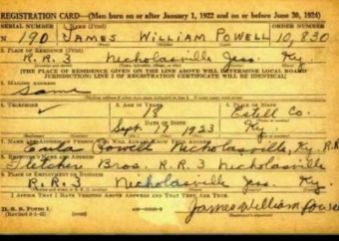 REGISTRATION CARD—(Men born on or after January 1, 1922 and on or before June 30, 1924)
SERIAL NUMBER 1. NAME (Print) ORDER NUMBER
N 190 JAMES WILLIAM POWELL 10,830
2. PLACE OF RESIDENCE (Print)
R.R. 3 Nicholasville Jess. Ky.
[THE PLACE OF RESIDENCE GIVEN ON THE LINE ABOVE WILL DETERMINE LOCAL BOARD
JURISDICTION; LINE 2 OF REGISTRATION CERTIFICATE WILL BE IDENTICAL]
3. MAILING ADDRESS
Same
4. TELEPHONE 5. AGE IN YEARS 6. PLACE OF BIRTH
19 Estell Co.
DATE OF BIRTH
Sept 17 1923 Ky.
Powell Nicholasville, Ky. R.R.
8. EMPLOYER'S NAME AND ADDRESS
Fletcher Bros. R.R. 3 Nicholasville
9. PLACE OF EMPLOYMENT OR BUSINESS
R.R. 3 Nicholasville Jess. Ky.
I AFFIRM THAT I HAVE VERIFIED ABOVE ANSWERS AND THAT THEY ARE TRUE.
D. S. S. Form 1
James William Powell